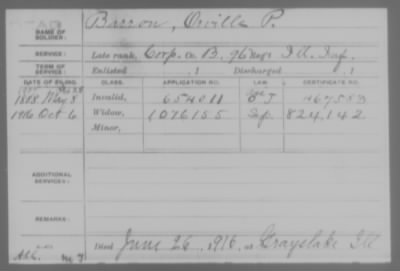 NAME OF SOLDIER: Barron, Orville P.
SERVICE: Late rank, Corp. Co. B, 96 Reg't Ill. Inf.
TERM OF SERVICE: Enlisted , 1 Discharged , 1
DATE OF FILING. CLASS. APPLICATION NO. LAW. CERTIFICATE NO.
1888 May 8 Invalid, 654011
1916 Oct 6 Widow, 1076155 Sep. 824,142
Minor,
ADDITIONAL SERVICE:
REMARKS:
Died June 26, 1916, at Grayslake Ill